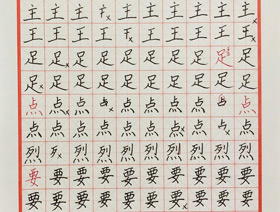 主 主 主 主 主 主 主 主 主
王 王 王 王 王 王 王 王 王
足 足 足 足 足 足 足 足 足 足
足 足 足 足 足 足 足 足 足 足
点 点 点 点 点 点 点 点
点 点 点 点 点 点 点 点 点
烈 烈 烈 烈 烈 烈 烈 烈 烈
要 要 要 要 要 要 要 要 要 要
要 要 要 要 要 要 要 要 要 要